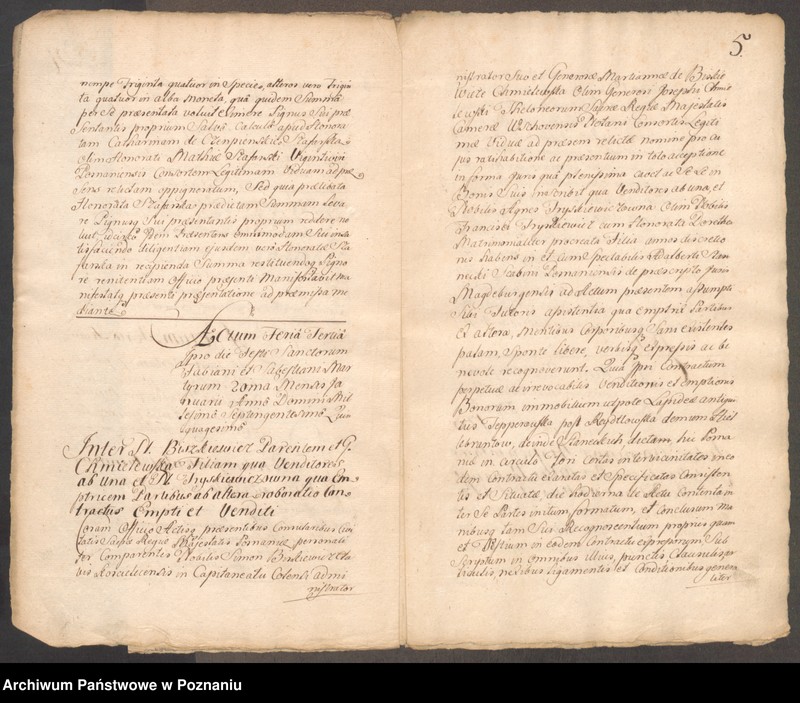 nempe Triginta quatuor in Specie, alteros vero Trigin
ta quatuor in alba Moneta, quâ quidem Summâ
per Se præsentata voluit eximere Pignus Sui præ
sentantis proprium Salvo Calculo apud Honora
tam Catharinam de
olim Honorati Mathiæ Szafarski
Posnaniensis Consortem Legitimam Viduam ad præ
sens relictam oppignoratum, Sed quia prælibata
Honorata Szafarska prædictam Summam leva
re Pignusq Sui præsentantis proprium reddere no
luit, Idem Præsentans omnimodam Sui in
tisfaciendo diligentiam ejusdem vero Honoratæ Sza
farska in recipienda Summa restituendoq Pigno
re renitentiam Officio præsenti Manifestabat ma
nifestatq præsenti præsentatione ad præmissa me
diante
Actum Feriâ Tertiâ
pro die Festi Sanctorum
Fabiani et Sabestiani Mar
tyrum 20ma Mensis Ja
nuarii Anno Domini Mil
lesimo Septingentesimo Quin
quagesimo
Inter N. Buszkiewicz Parentem et G.
Chmielewska Filiam qua Venditores
ab una et N. Fryszkiewiczowna qua Em
ptricem Partibus ab altera roboratio Con
tractus Empti et Venditi
Coram Officio Actisq præsentibus Consularibus Civi
tatis Sacræ Regiæ Majestatis Posnaniæ personali
ter Comparentes Nobilis Simon
Koscielecensis in Capitaneatu Colensi admi
nistrator
5.
nistrator Suo et Generosæ Mariannæ de
Chmielewska Olim Generosi Josephi Chmie
lewski Theloneorum Sacræ Regiæ Majestatis
Cameræ Wschovensis Notarii Consortis Legiti
mæ Viduæ ad præsens relictæ nomine pro cu
jus ratihabitione ac præsentium in toto acceptione
in forma Juris quâ plenissima cavet ac Se et in
Bonis Suis inscribit qua Venditores ab una, et
Nobilis Agnes Fryszkiewiczowna Olim Nobilis
Francisci Fryszkiewicz cum Honorata Dorothea
Matrimonialiter procreata Filia annos discretio
nis habens in et cum Spectabilis Adalberti
Scabini Posnaniensis de præscripto Juris
Magdeburgensis ad Actum præsentem assumpti
Sibi Tutoris assistentia qua emptrix Partibus
ex altera, Mentibus Corporibusq Sani existentes
palam, Sponte libere, verbisq expressis ac be
nevole recognoverunt. Quia Ipsi Contractum
perpetuæ ac irrevocabilis Venditionis et emptionis
Bonorum immobilium utpote Lapideæ antiqui
tus Tepperowska post Reydtlowska demum
deinde dictam, hic Posna
niæ in circulo Fori certas inter vicinitates in eo
dem contractu exaratas et Specificatas Consisten
tis et Situatæ, die hodierna de Actu Contentam in
ter Se Partes initum, formatum, et conclusum ma
nibusq tam Sui Recognoscentium propriis quam
et Testium in eodem Contractu expressorum Sub
scriptum in omnibus illius, punctis Clausulis ar
ticulis nexibus ligamentis et Conditionibus genera
liter
Archiwum Państwowe w Poznaniu